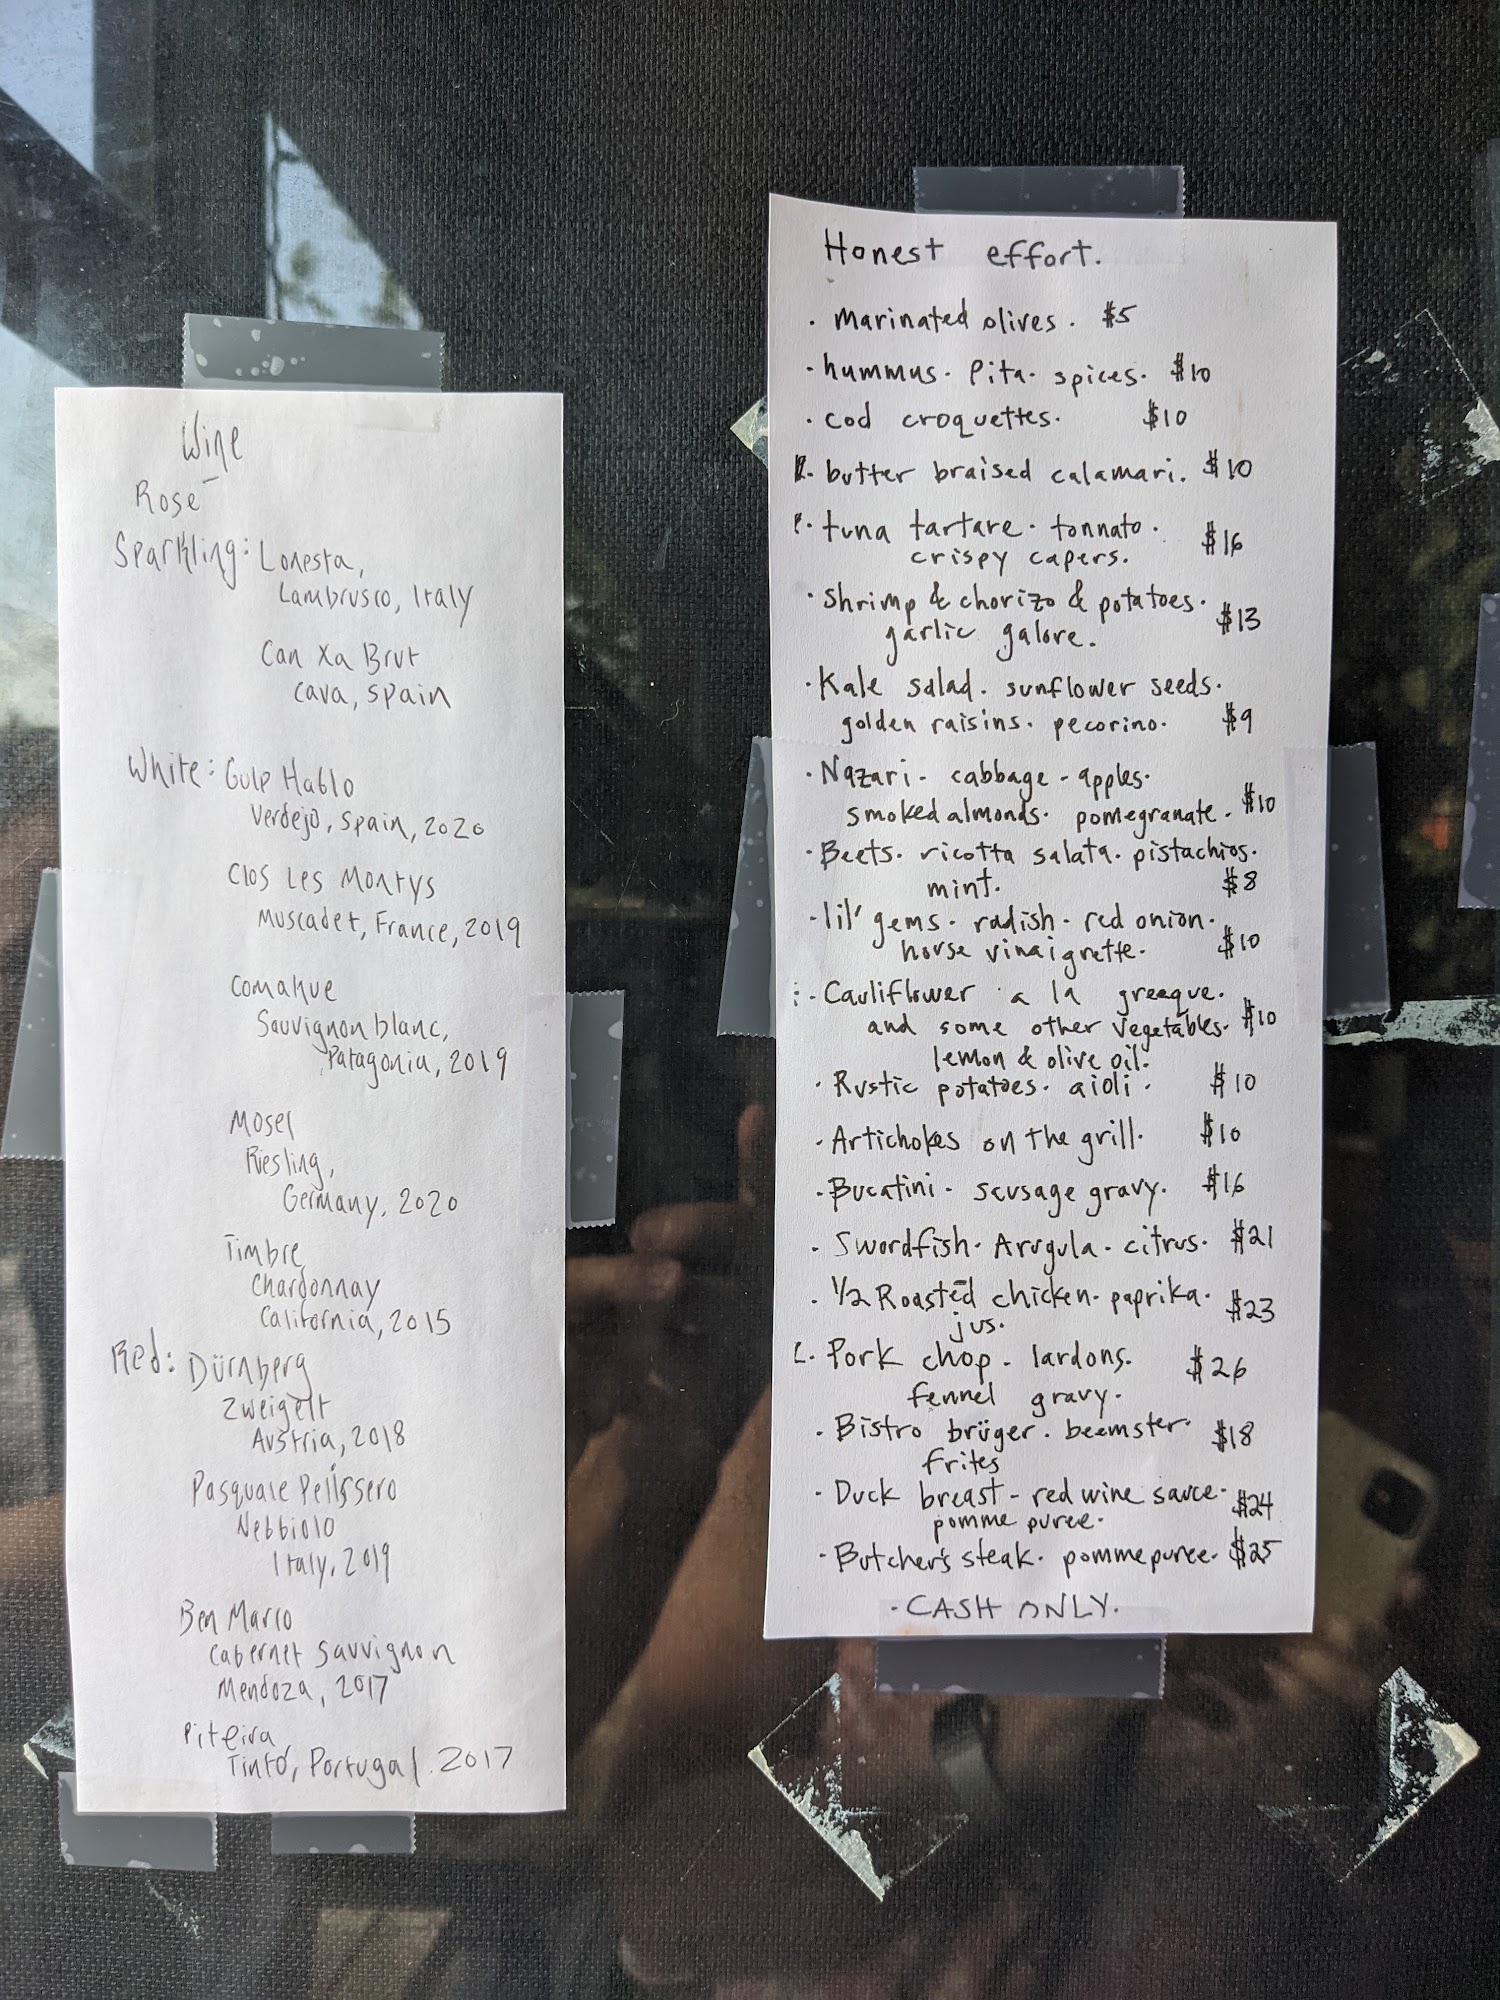 Wine
Rosé
Sparkling: Lonesta,
Lambrusco, Italy
Can Xa Brut
Cava, Spain
White: Gulp Hablo
Verdejo, Spain, 2020
Clos Les Montys
Muscadet, France, 2019
Comahue
Sauvignon blanc,
Patagonia, 2019
Mosel
Riesling,
Germany, 2020
Timbre
Chardonnay
California, 2015
Red: Dürnberg
Zweigelt
Austria, 2018
Pasquale Pelissero
Nebbiolo
Italy, 2019
Ben Marco
Cabernet Sauvignon
Mendoza, 2017
Piteira,
Tinto, Portugal. 2017
Honest effort.
· Marinated olives. $5
· hummus. Pita. spices. $10
· cod croquettes. $10
· butter braised calamari. $10
· tuna tartare. tonnato.
crispy capers. $16
· Shrimp & chorizo & potatoes.
garlic galore. $13
· Kale salad. sunflower seeds.
golden raisins. pecorino. $9
· Nazari - cabbage - apples.
smoked almonds. pomegranate. $10
· Beets. ricotta salata. pistachios.
mint. $8
· lil' gems. radish. red onion.
horse vinaigrette. $10
· Cauliflower a la greeque.
and some other vegetables. $10
lemon & olive oil.
· Rustic potatoes. aioli. $10
· Artichokes on the grill. $10
· Bucatini - sausage gravy. $16
· Swordfish. Arugula. citrus. $21
· 1/2 Roasted chicken. paprika.
jus. $23
· Pork chop - lardons. $26
fennel gravy.
· Bistro brüger. beemster. $18
frites
· Duck breast - red wine sauce. $24
pomme puree.
· Butcher's steak. pomme puree. $25
· CASH ONLY.